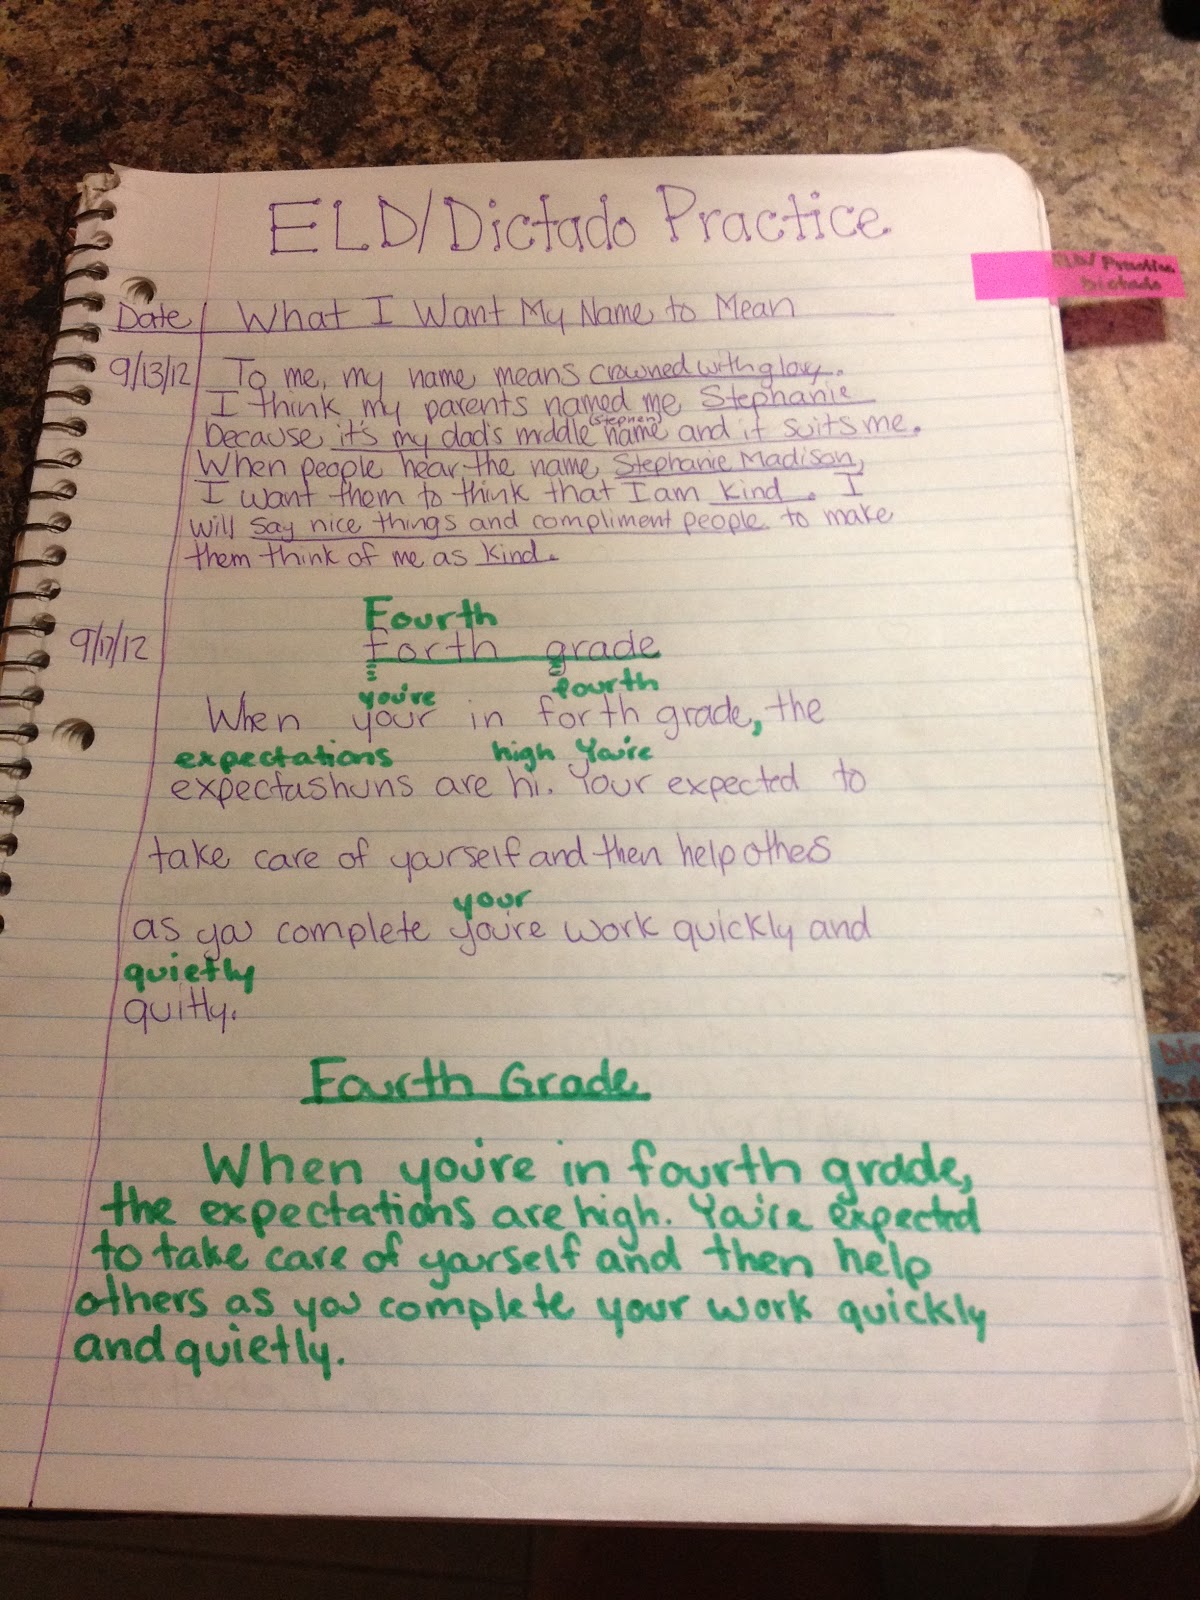 ELD/Dictado Practice
ELD/ Practice
Dictado
Date What I Want My Name to Mean
9/13/12 To me, my name means crowned with glory.
I think my parents named me Stephanie
(Stephen)
because it's my dad's middle name and it suits me.
When people hear the name Stephanie Madison,
I want them to think that I am kind. I
will say nice things and compliment people to make
them think of me as kind.
Fourth
9/17/12 forth grade
you're fourth
When your in forth grade, the
expectations high You're
expectashuns are hi. Your expected to
take care of yourself and then help others
your
as you complete you're work quickly and
quietly
quitly.
Fourth Grade
When you're in fourth grade,
the expectations are high. You're expected
to take care of yourself and then help
others as you complete your work quickly
and quietly.